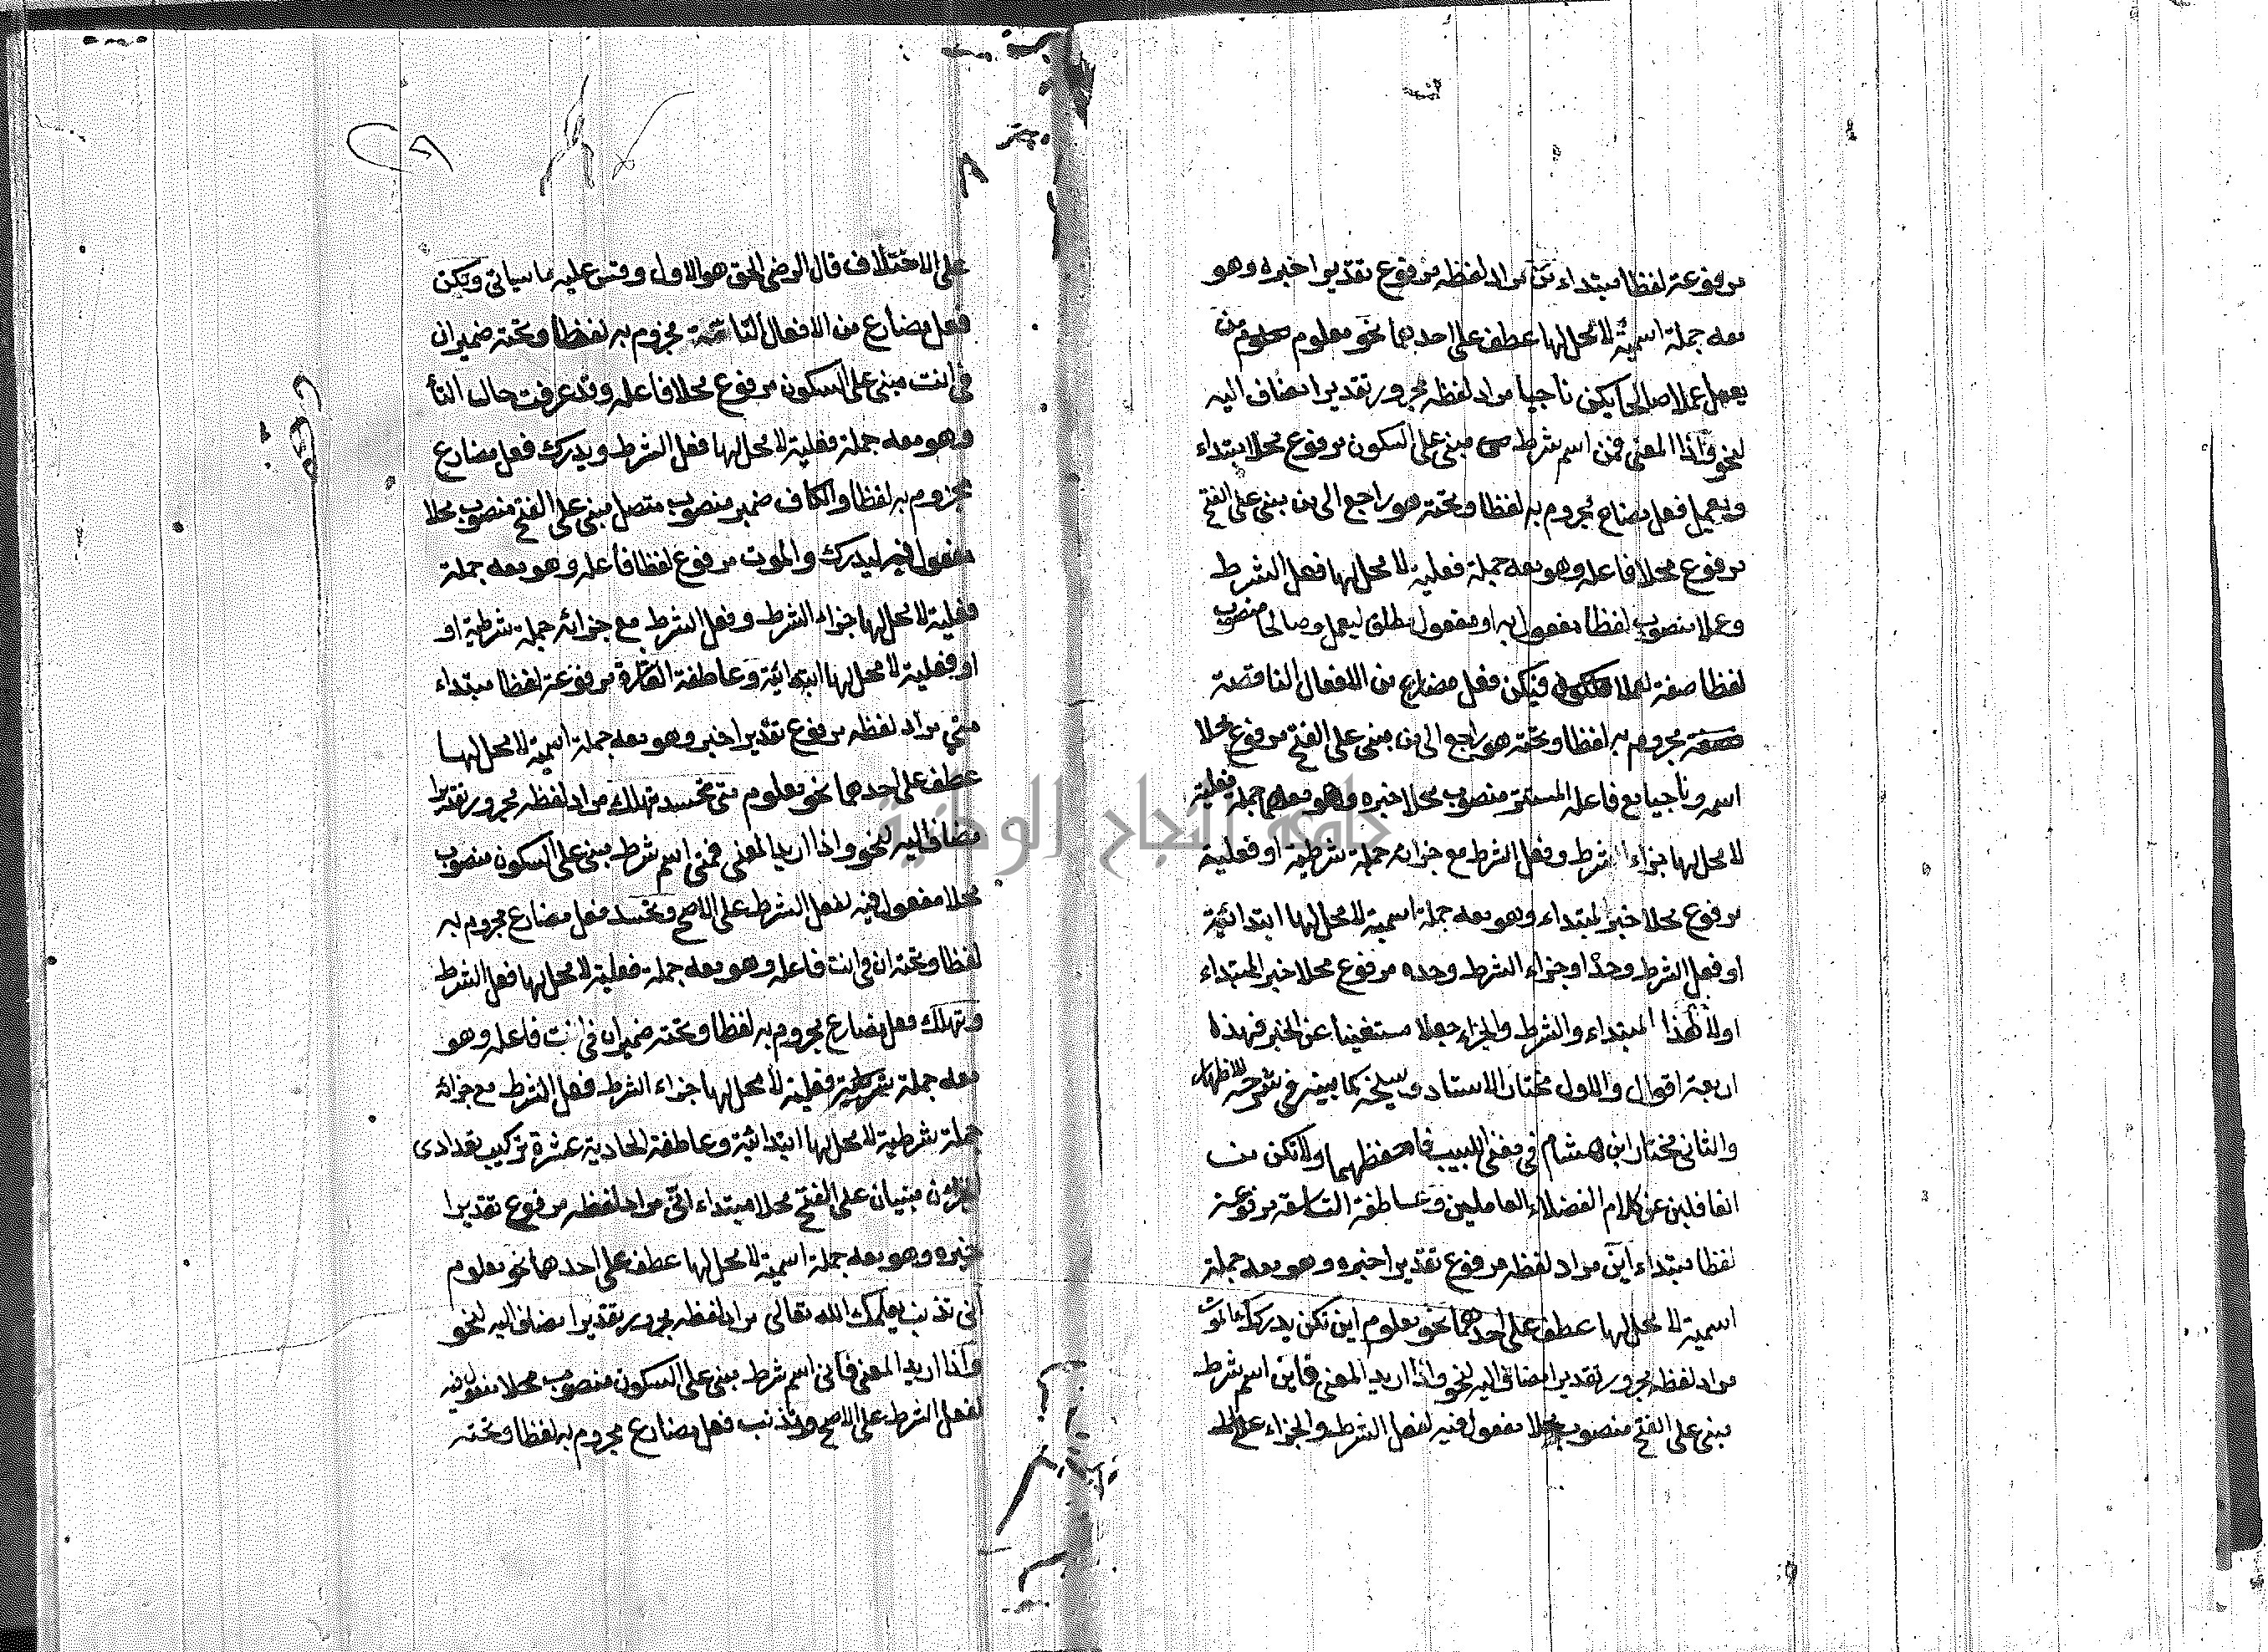 مرفوعة لفظا مبتداء من مراد لفظه مرفوع تقديرا خبره وهو
معه جملة اسمية لا محل لها عطف على احدهما نحو معلوم من
يعمل عملا صالحا يكن ناجيا مراد لفظه مجرور تقديرا مضاف اليه
لنحو واذا المعنى فمن اسم شرط مبنى على السكون مرفوع محلا مبتداء
ويعمل فعل مضارع مجزوم به لفظا وتحته هو راجع الى من مبنى على الفتح
مرفوع محلا فاعله وهو معه جملة فعلية لا محل لها فعل الشرط
وعملا منصوب لفظا مفعول به او مفعول مطلق ليعمل وصالحا منصوب
لفظا صفة لعملا فيكن فعل مضارع من الافعال الناقصة
مجزوم به لفظا وتحته هو راجع الى من مبنى على الفتح مرفوع محلا
اسمه وناجيا مع فاعله المستتر منصوب محلا خبره وهو معهما جملة فعلية
لا محل لها جزاء الشرط وفعل الشرط مع جزائه جملة شرطية او فعلية
مرفوع محلا خبر لمبتداء وهو معه جملة اسمية لا محل لها ابتدائية
او فعل الشرط وحده او جزاء الشرط وحده مرفوع محلا خبر المبتداء
اولا لهذا المبتداء والشرط والجزاء جعلا مستغنيا عن الخبر فهذه
اربعة اقوال والاول مختار الاستاد وسيلخه كما بينه في شرحه للاظهار
والثانى مختار ابن هشام في مغنى اللبيب فاحفظهما ولا تكن من
الغافلين عن كلام الفضلاء العاملين وعاطفة التاسعة مرفوعة
لفظا مبتداء اين مراد لفظه مرفوع تقديرا خبره وهو معه جملة
اسمية لا محل لها عطف على احدهما نحو معلوم اين تكن يدركك الموت
مراد لفظه مجرور تقديرا مضاف اليه لنحو واذا اريد المعنى فاين اسم شرط
مبنى على الفتح منصوب محلا مفعول فيه لفعل الشرط والجزاء على
على الاختلاف قال الرضى الحق هو الاول وقس عليه ما سياتى وتكن
فعل مضارع من الافعال الناقصة مجزوم به لفظا وتحته ضمير ان
في انت مبنى على السكون مرفوع محلا فاعله وقد عرفت حال التأ
وهو معه جملة فعلية لا محل لها فعل الشرط ويدرك فعل مضارع
مجزوم به لفظا والكاف ضمير منصوب متصل مبنى على الفتح منصوب محلا
مفعول فيه ليدرك والموت مرفوع لفظا فاعله وهو معه جملة
فعلية لا محل لها جزاء الشرط وفعل الشرط مع جزائه جملة شرطية او
او فعلية لا محل لها ابتدائية وعاطفة العاشرة مرفوعة لفظا مبتداء
متى مراد لفظه مرفوع تقديرا خبر وهو معه جملة اسمية لا محل لها
عطف على احدهما نحو معلوم متى تحسد تهلك مراد لفظه مجرور تقديرا
مضاف اليه لنحو واذا اريد المعنى فمتى اسم شرط مبنى على السكون منصوب
محلا مفعول فيه لفعل الشرط على الاصح وتحسد فعل مضارع مجزوم به
لفظا وتحته ان في انت فاعله وهو معه جملة فعلية لا محل لها فعل الشرط
وتهلك فعل مضارع مجزوم به لفظا وتحته ضمير ان في انت فاعله وهو
معه جملة فعلية لا محل لها جزاء الشرط فعل الشرط مع جزائه
جملة شرطية لا محل لها ابتدائية وعاطفة الحادية عشرة تركيب تعدادى
مبنيان على الفتح محلا مبتداء انى مراد لفظه مرفوع تقديرا
خبره وهو معه جملة اسمية لا محل لها عطف على احدهما نحو معلوم
انى تذنب يعلمك الله تعالى مراد لفظه مجرور تقديرا مضاف اليه لنحو
واذا اريد المعنى فانى اسم شرط مبنى على السكون منصوب محلا مفعول فيه
لفعل الشرط على الاصح وتذنب فعل مضارع مجزوم به لفظا وتحته
جامعة النجاح الوطنية